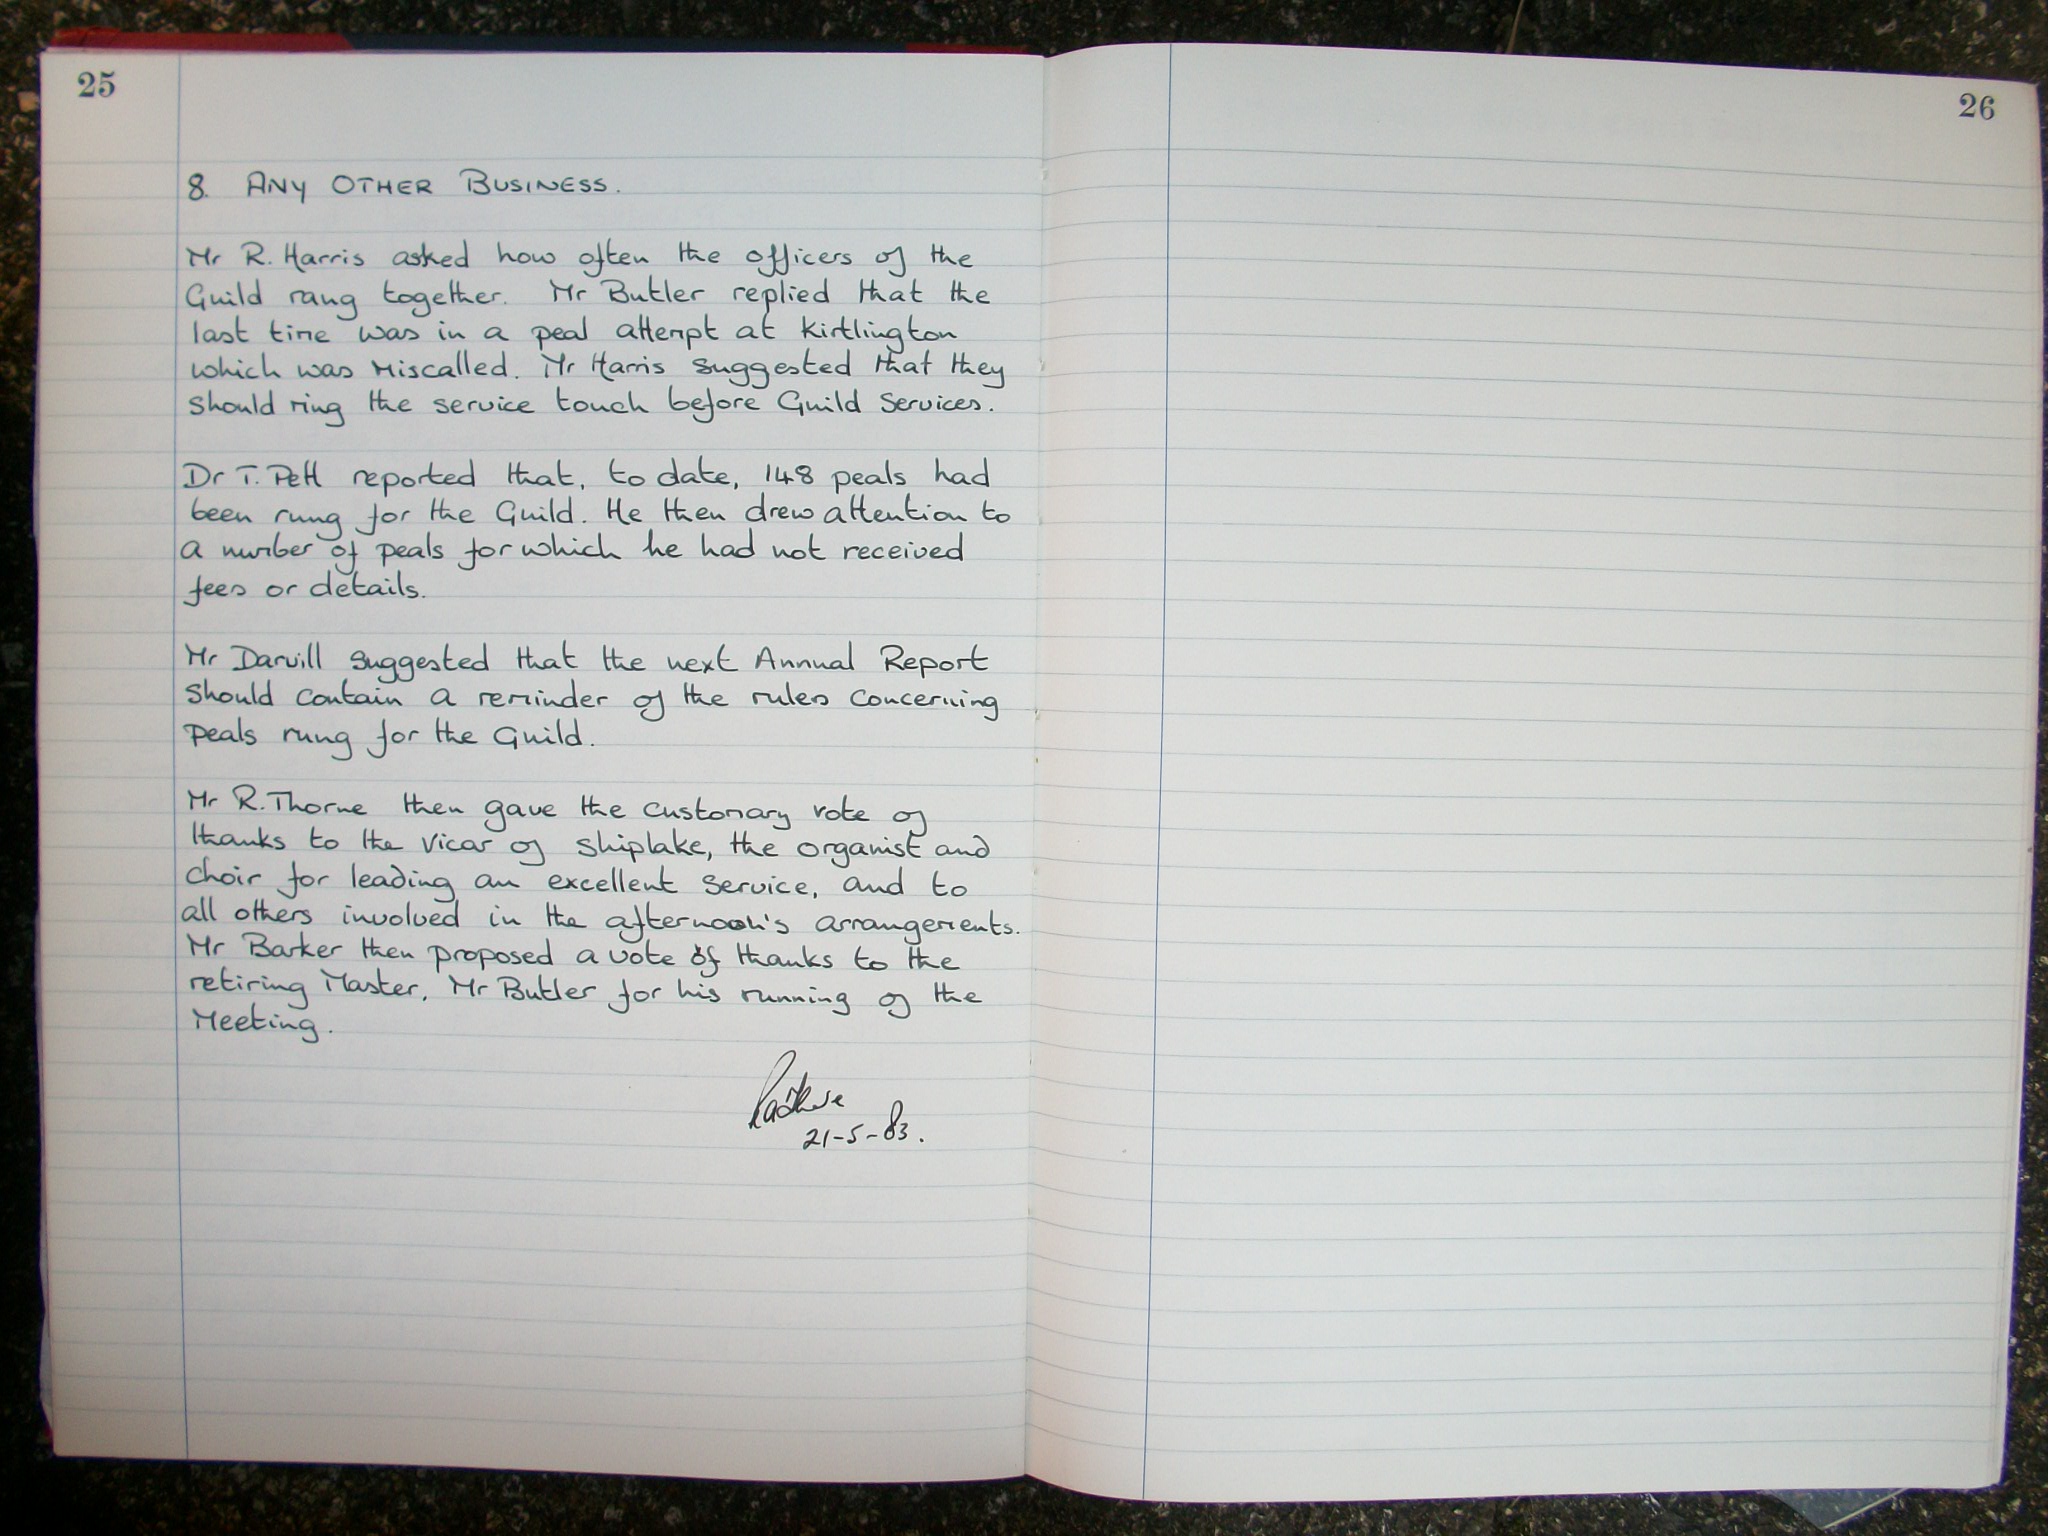 25
8. ANY OTHER BUSINESS.
Mr R. Harris asked how often the officers of the
Guild rang together. Mr Butler replied that the
last time was in a peal attempt at Kirtlington
which was miscalled. Mr Harris suggested that they
should ring the service touch before Guild Services.
Dr T. Pett reported that, to date, 148 peals had
been rung for the Guild. He then drew attention to
a number of peals for which he had not received
fees or details.
Mr Darvill suggested that the next Annual Report
should contain a reminder of the rules concerning
peals rung for the Guild.
Mr R. Thorne then gave the customary vote of
thanks to the Vicar of Shiplake, the organist and
choir for leading an excellent service, and to
all others involved in the afternoon's arrangements.
Mr Barker then proposed a vote of thanks to the
retiring Master, Mr Butler for his running of the
Meeting.
21-5-83.
26